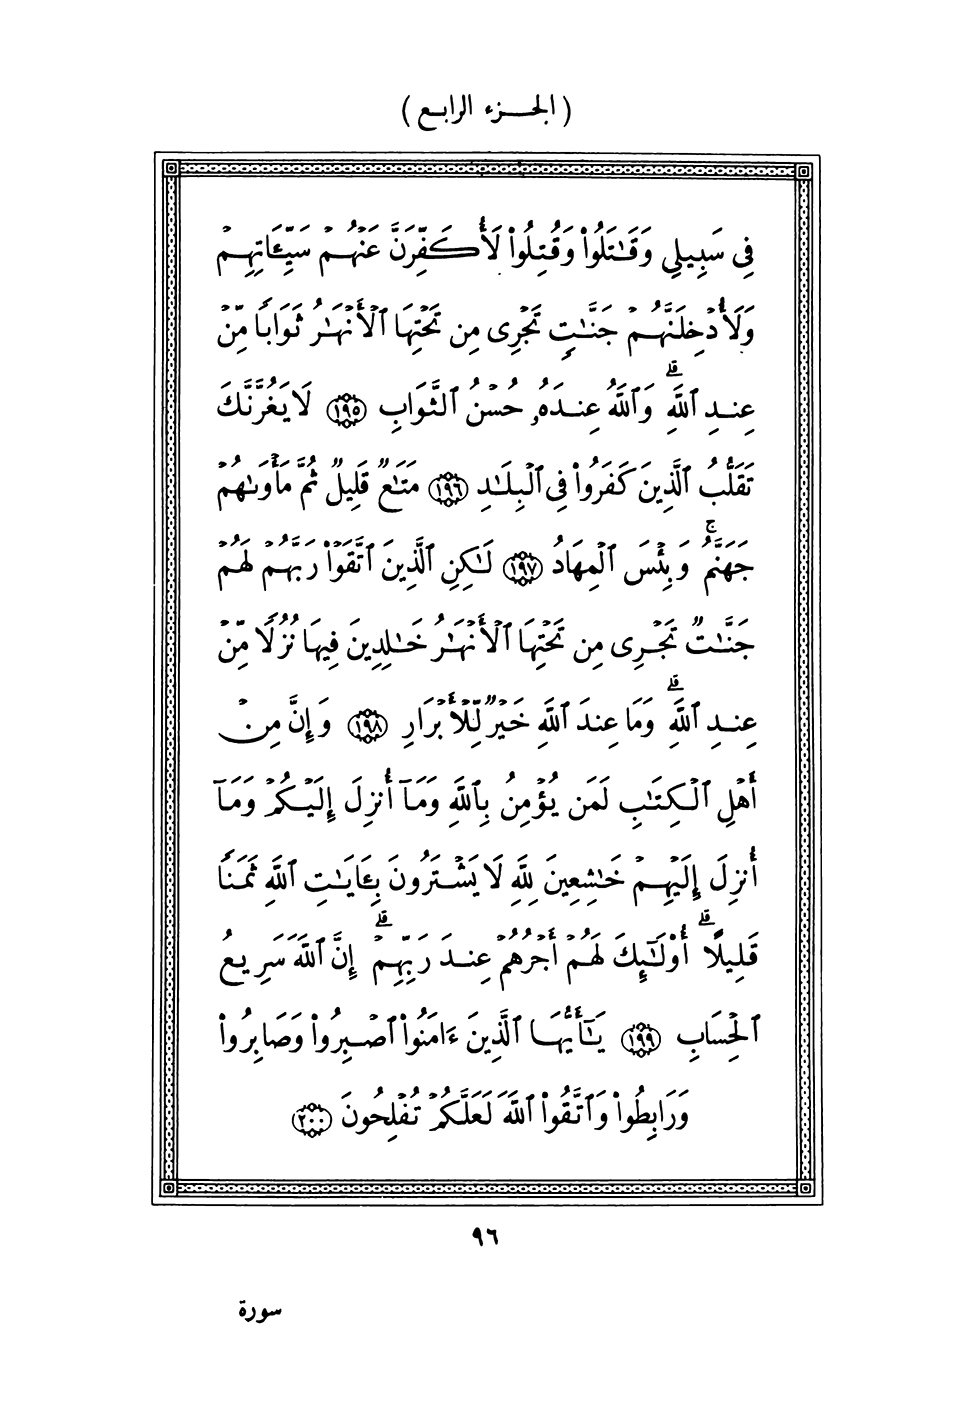 ( الجزء الرابع )
فِي سَبِيلِي وَقَٰتَلُوا۟ وَقُتِلُوا۟ لَأُكَفِّرَنَّ عَنْهُمْ سَيِّـَٔاتِهِمْ
وَلَأُدْخِلَنَّهُمْ جَنَّٰتٍ تَجْرِى مِن تَحْتِهَا ٱلْأَنْهَٰرُ ثَوَابًا مِّنْ
عِندِ ٱللَّهِ ۗ وَٱللَّهُ عِندَهُۥ حُسْنُ ٱلثَّوَابِ ١٩٥ لَا يَغُرَّنَّكَ
تَقَلُّبُ ٱلَّذِينَ كَفَرُوا۟ فِى ٱلْبِلَٰدِ ١٩٦ مَتَٰعٌ قَلِيلٌ ثُمَّ مَأْوَىٰهُمْ
جَهَنَّمُ ۚ وَبِئْسَ ٱلْمِهَادُ ١٩٧ لَٰكِنِ ٱلَّذِينَ ٱتَّقَوْا۟ رَبَّهُمْ لَهُمْ
جَنَّٰتٌ تَجْرِى مِن تَحْتِهَا ٱلْأَنْهَٰرُ خَٰلِدِينَ فِيهَا نُزُلًا مِّنْ
عِندِ ٱللَّهِ ۗ وَمَا عِندَ ٱللَّهِ خَيْرٌ لِّلْأَبْرَارِ ١٩٨ وَإِنَّ مِنْ
أَهْلِ ٱلْكِتَٰبِ لَمَن يُؤْمِنُ بِٱللَّهِ وَمَآ أُنزِلَ إِلَيْكُمْ وَمَآ
أُنزِلَ إِلَيْهِمْ خَٰشِعِينَ لِلَّهِ لَا يَشْتَرُونَ بِـَٔايَٰتِ ٱللَّهِ ثَمَنًا
قَلِيلًا ۗ أُو۟لَٰٓئِكَ لَهُمْ أَجْرُهُمْ عِندَ رَبِّهِمْ ۗ إِنَّ ٱللَّهَ سَرِيعُ
ٱلْحِسَابِ ١٩٩ يَٰٓأَيُّهَا ٱلَّذِينَ ءَامَنُوا۟ ٱصْبِرُوا۟ وَصَابِرُوا۟
وَرَابِطُوا۟ وَٱتَّقُوا۟ ٱللَّهَ لَعَلَّكُمْ تُفْلِحُونَ ٢٠٠
٩٦
سورة